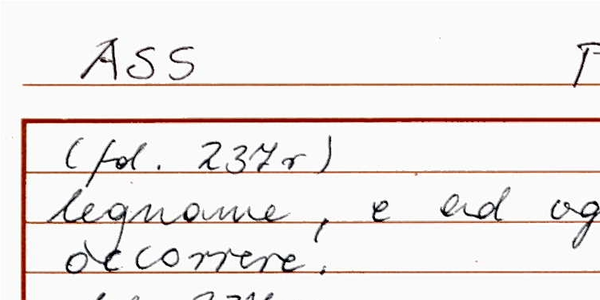 ASS
(fol. 237r)
legname, e ad og
occorrere.